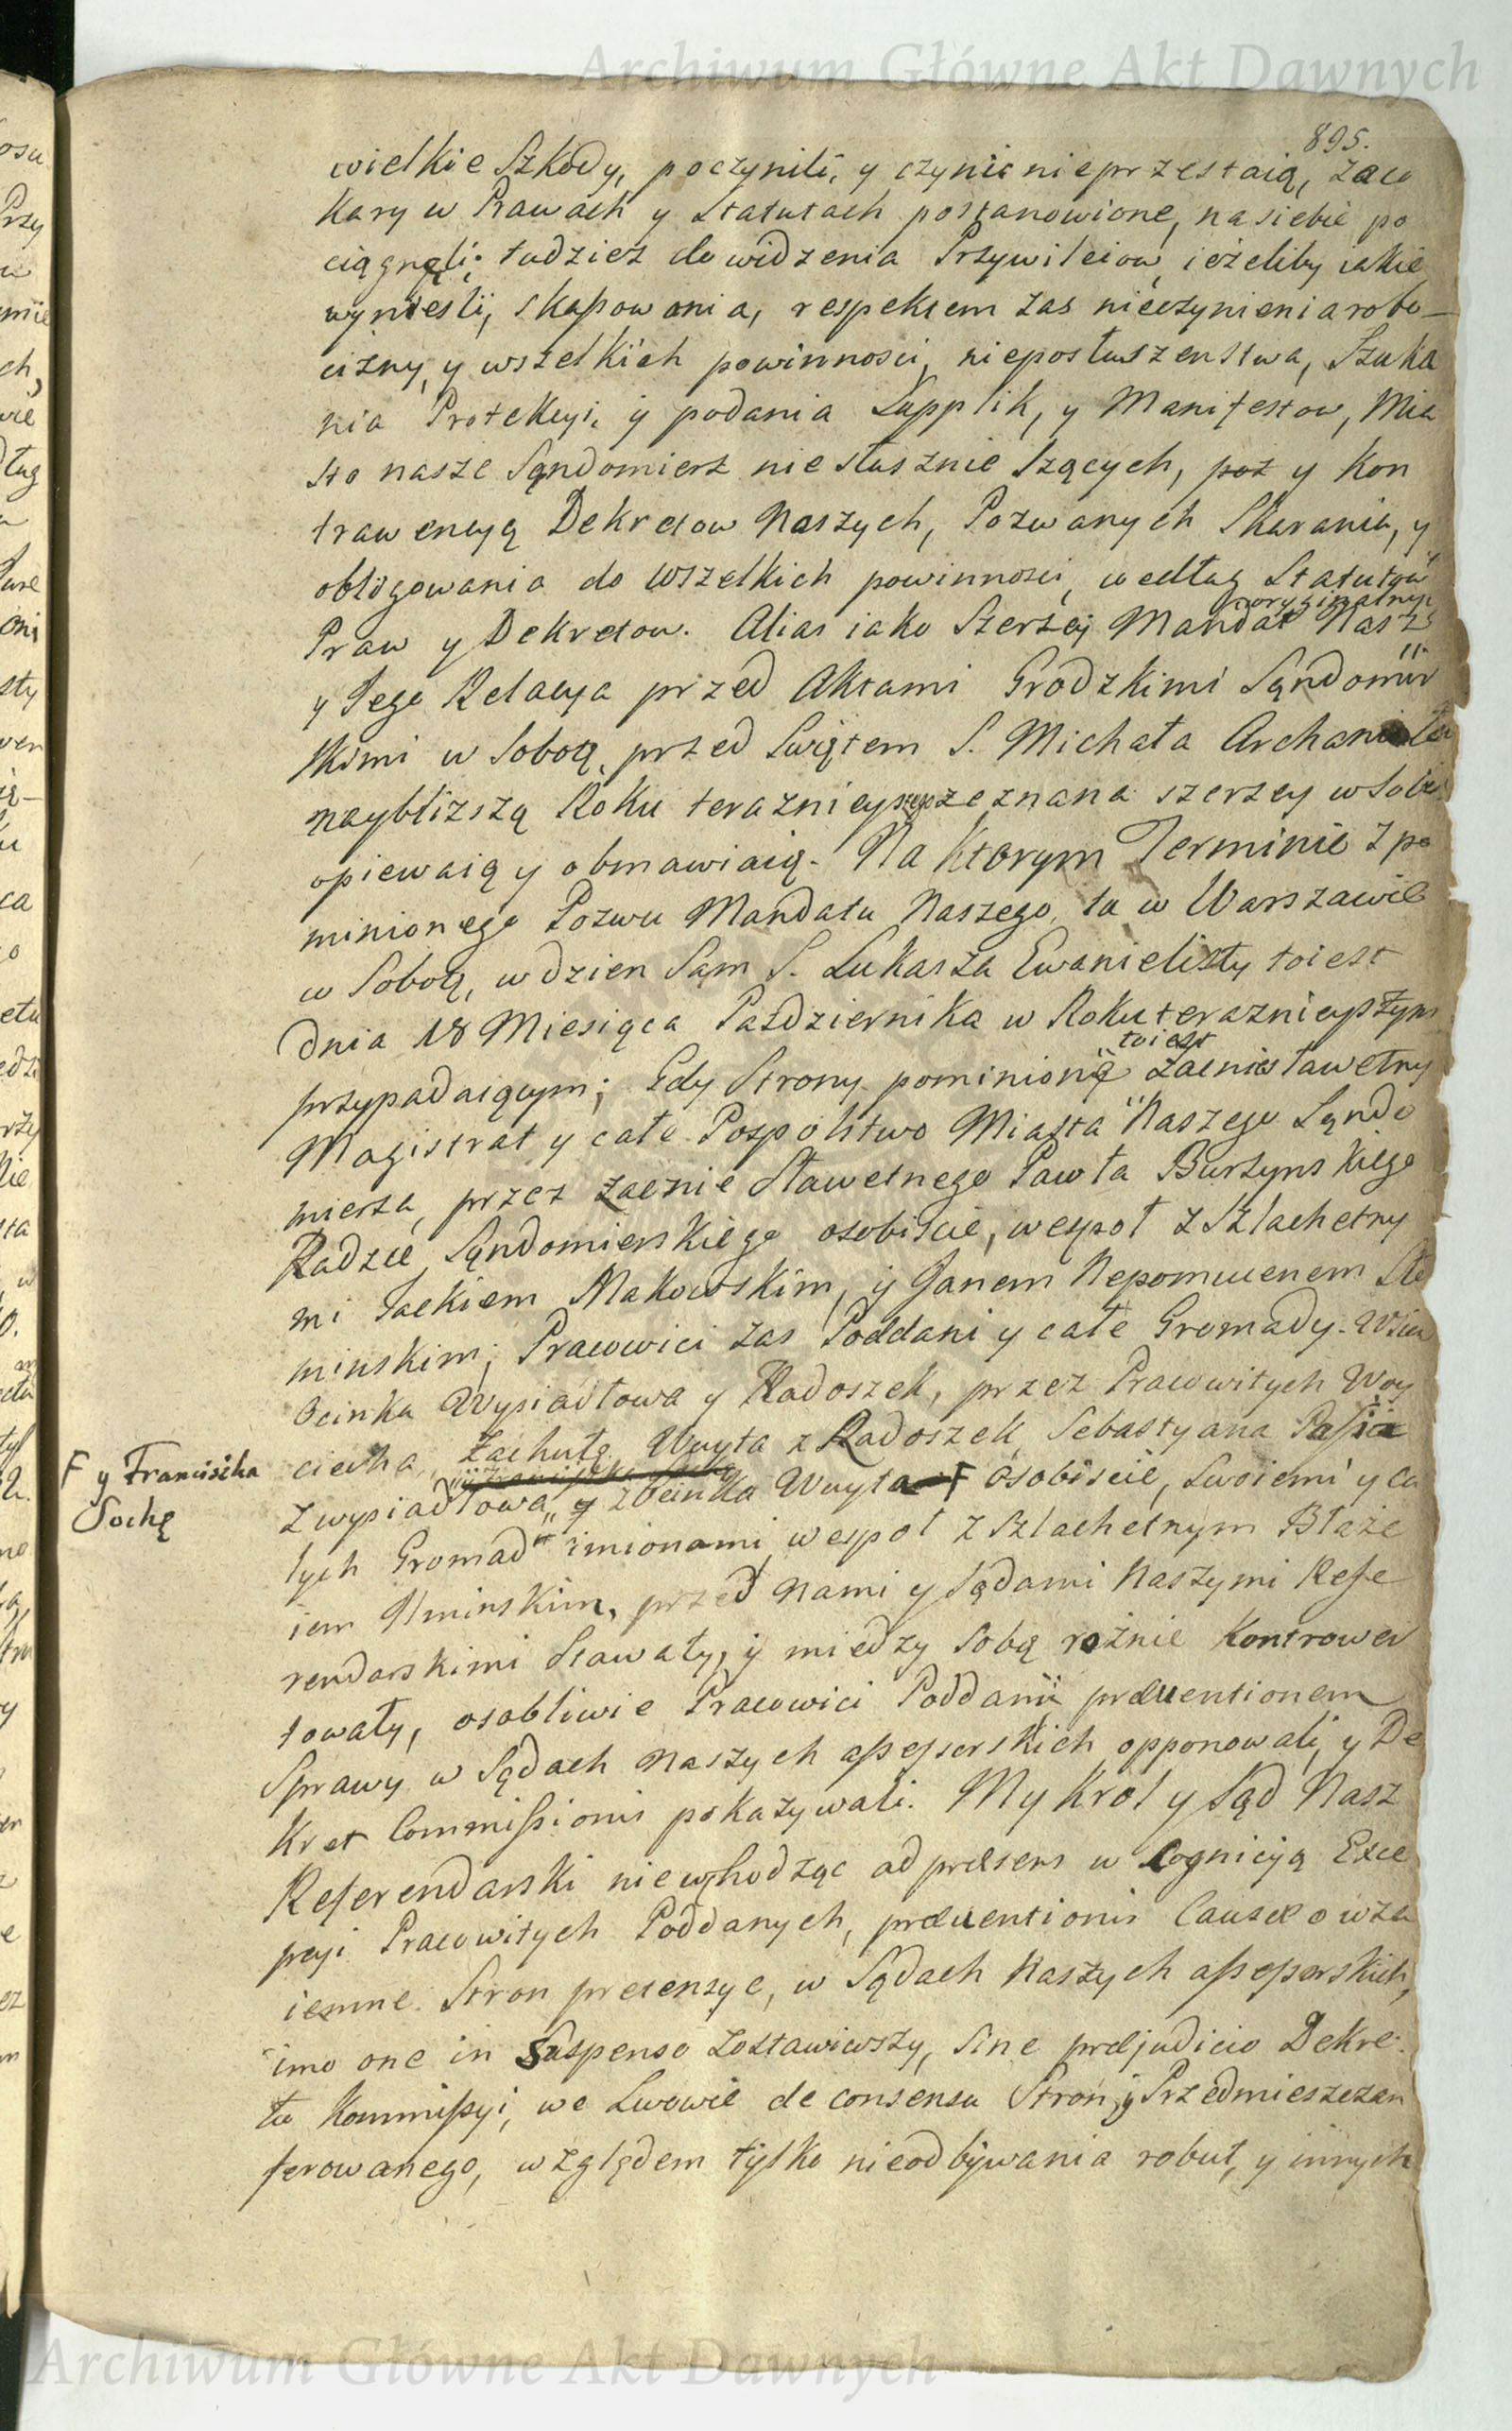 Archiwum Główne Akt Dawnych
895.
wielkie Szkody, poczynili, y czynić nieprzestaią, zaco
kary w Prawach y Statutach postanowione, na siebie po
ciągnęli; tudziesz do widzenia Przywileiow, ieżeliby iakie
wynieśli, skassowania, respektem zas nieczynienia robo-
cizny, y wszelkich powinnosci, nieposłuszenstwa, Szuka
nia Protekcyi, y podania Supplik, y Manifestow, Mia
sto nasze Sąndomierz niesłusznie Szących, poż y Kon
trawencyą Dekretow Naszych, Pozwanych Skarania, y
obligowania do wszelkich powinnosci, według Statutow
Praw y Dekretow. Alias iako Szerzey Mandat Nasz
w oryginalnym
y Jego Relacya przed Aktami Grodzkimi Sąndomir
skimi w Sobotę, przed Swiętem S. Michała Archanioła
nayblizszą Roku teraznieyszego zeznana szerzey w Sobie
opiewaią y obmawiaią. Na ktorym Terminie z po
minionego Pozwu Mandatu Naszego, tu w Warszawie
w Sobotę, w dzien Sam S. Łukasza Ewanielisty toiest
dnia 18 Miesiąca Października w Roku teraznieyszym
przypadaiącym; Gdy Strony pominione toiest Zacnie sławetny
Magistrat y całe Pospolstwo Miasta Naszego Sąndo
mierza, przez Zacnie Sławetnego Pawła Burzynskiego
Radzcę Sąndomierskiego osobiscie, wespoł z Szlachetny
mi Jackiem Makowskim, y Janem Nepomucenem Sło
minskim; Pracowici zas Poddani y całe Gromady. Wsiow
Ocinka Wysiadłowa y Radoszek, przez Pracowitych Woy
ciecha, Zachutę Woyta z Radoszek, Sebastyana Pasia
F y Franciszka
Sochę
z wysiadłowa y z Ocinka Woyta F osobiscie, swoiemi y ca
łych Gromad imionami wespoł z Szlachetnym Błaże
iem Uminskim, przed Nami y Sądami Naszymi Refe
rendarskimi Stawały, y miedzy Sobą rożnie Kontrower
towały, osobliwie Pracowici Poddani præventionem
Sprawy w Sądach Naszych assessorskich opponowali, y De
kret Commissionis pokazywali. My Krol y Sąd Nasz
Referendarski niewchodząc ad præsens w Cognicyą Exce
pcyi Pracowitych Poddanych, præventionis Causæ o wza
iemne Stron pretensye, w Sądach Naszych assessorskich,
imo one in Suspenso zostawiwszy, Sine præjudicio Dekre
tu Kommissyi, we Lwowie de consensu Stron, y Przedmieszczan
ferowanego, względem tylko nieodbywania robut, y innych
Archiwum Główne Akt Dawnych